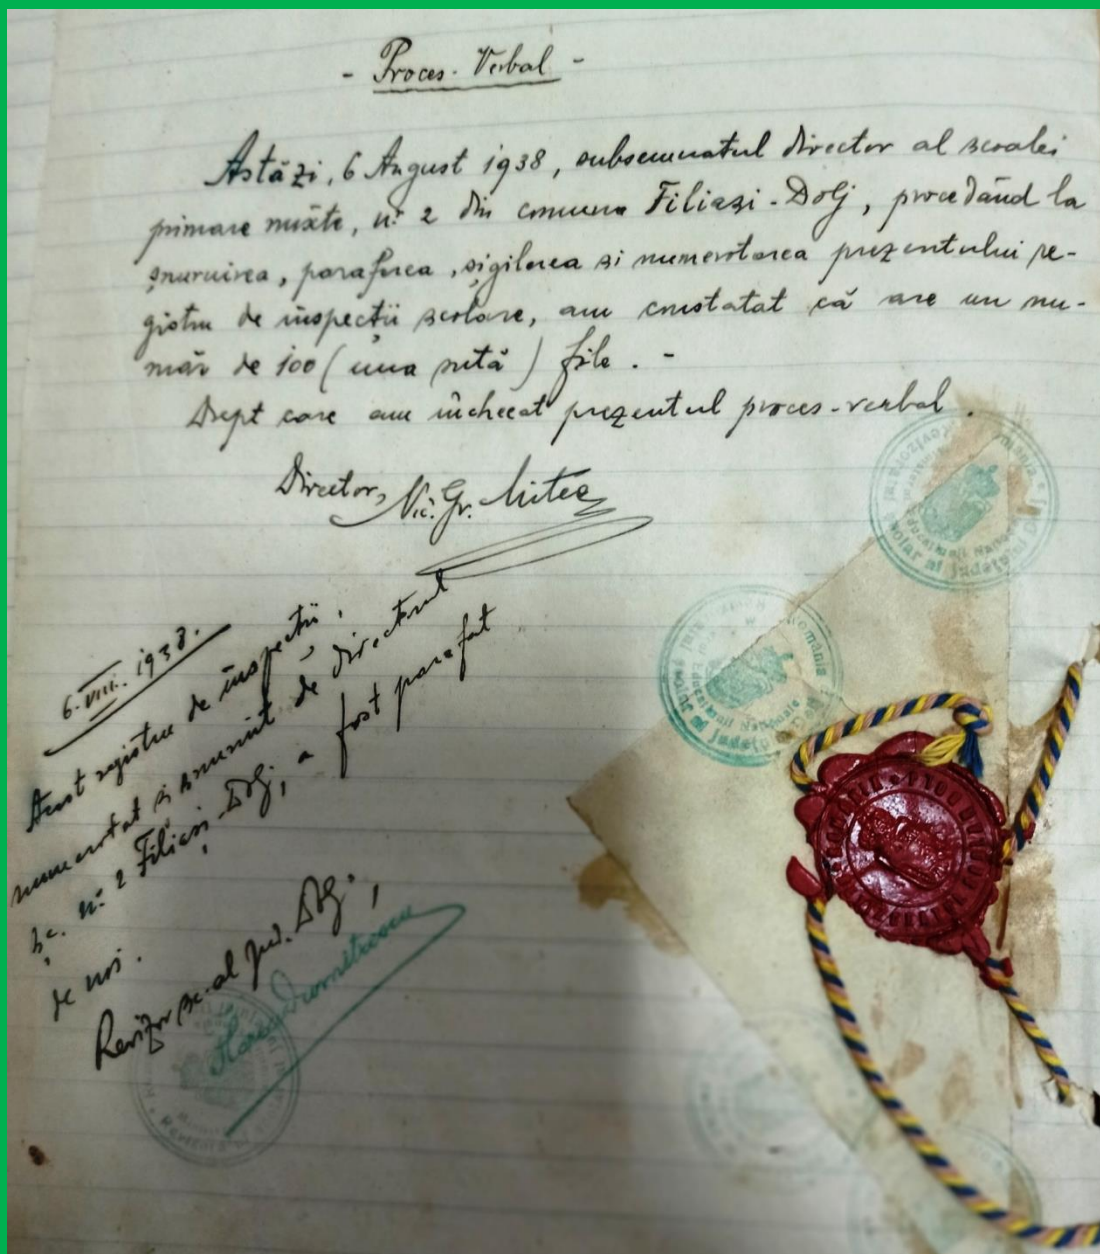 - Proces-Verbal -
Astăzi, 6 August 1938, subsemnatul director al școalei
primare mixte, nr. 2 din comuna Filiași-Dolj, procedând la
șnuruirea, parafarea, sigilarea și numerotarea prezentului re-
gistru de inspecții școlare, am constatat că are un nu-
măr de 100 (una sută) file. -
Drept care am încheeat prezentul proces-verbal.
Director, Nic. Gr. Mitea
6.VIII.1938.
Acest registru de inspecții,
numerotat și șnuruit de directorul
șc. nr. 2 Filiași-Dolj, a fost parafat
de noi.
Revizor șc. al jud. Dolj,
Dumitrescu